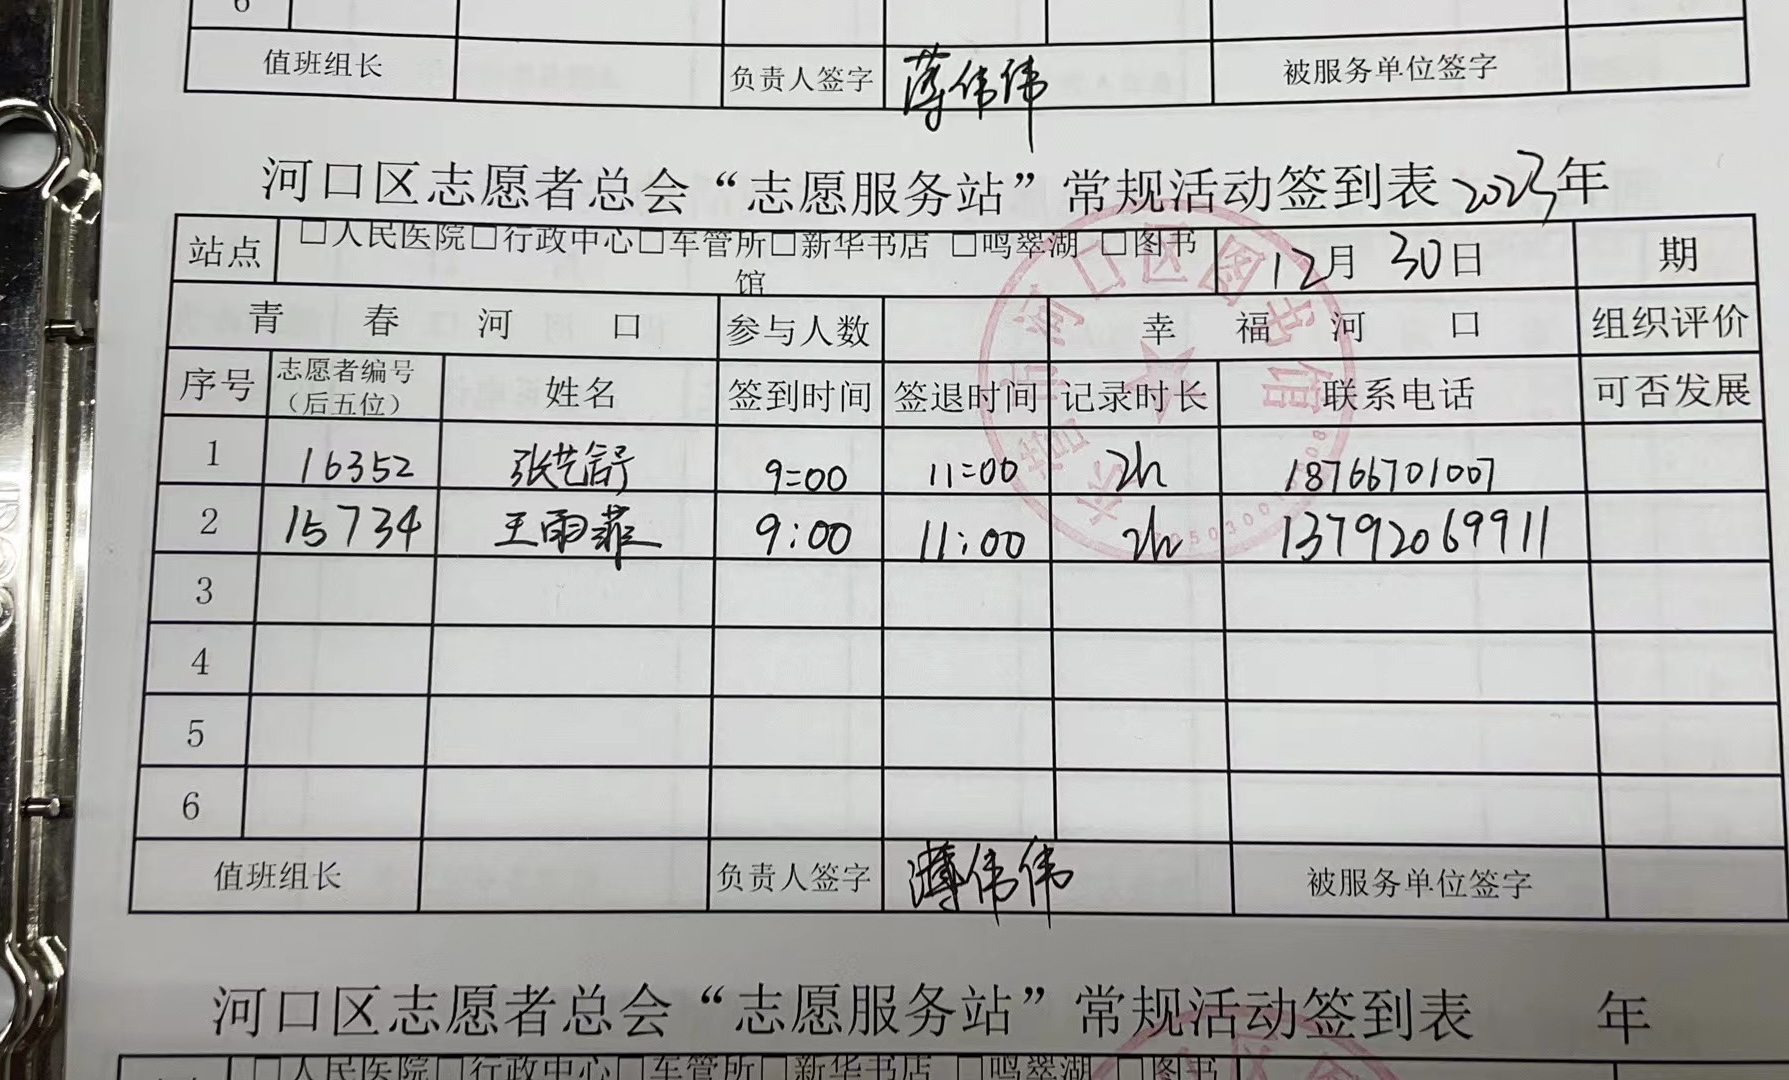 6
值班组长 负责人签字 薄伟伟 被服务单位签字
河口区志愿者总会“志愿服务站”常规活动签到表 2023年
站点 □人民医院□行政中心□车管所□新华书店 □鸣翠湖 □图书馆 12月30日 期
青春河口 参与人数 幸福河口 组织评价
序号 志愿者编号（后五位） 姓名 签到时间 签退时间 记录时长 联系电话 可否发展
1 16352 张艺舒 9:00 11:00 2h 18766701007
2 15734 王雨菲 9:00 11:00 2h 13792069911
3
4
5
6
值班组长 负责人签字 薄伟伟 被服务单位签字
河口区志愿者总会“志愿服务站”常规活动签到表 年
□人民医院□行政中心□车管所□新华书店 □鸣翠湖 □图书
河口区图书馆